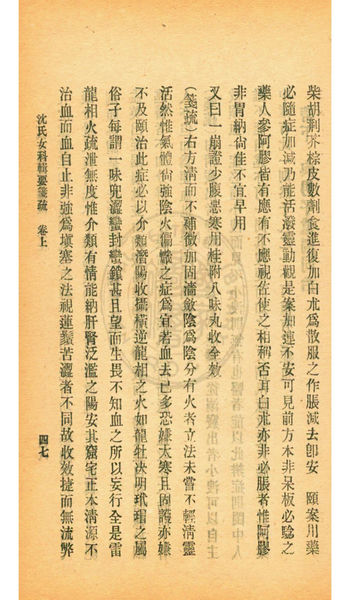 柴胡荆芥棕皮數劑食進復加白朮爲散服之作脹減去卽安　頤案川藥
必隨症加減乃能活潑靈動觀是案加連不安可見前方本非呆板必騐之
藥人參阿膠皆有應有不應視佐使之相稱否耳白朮亦非必脹者惟阿膠
非胃納尙佳不宜早用
又曰一崩證少腹惡寒用桂附八味丸收全效
(箋疏)右方清而不補微加固濇斂陰爲陰分有火者立法未嘗不輕清靈
活然惟氣體尙強陰火偏熾之症爲宜若血去已多恐嫌太寒且固護亦嫌
不及頤治此症必以介類潛陽收攝橫逆龍相之火如龍牡决明玳瑁之屬
俗子每謂一味兜濇蠻封蠻鎖甚且望而生畏不知血之所以妄行全是雷
龍相火疏泄無度惟介類有情能納肝腎泛濫之陽安其窟宅正本清源不
治血而血自止非強爲塡塞之法視蓮鬚苦濇者不同故收效捷而無流弊
沈氏女科輯要箋疏　卷上
四七